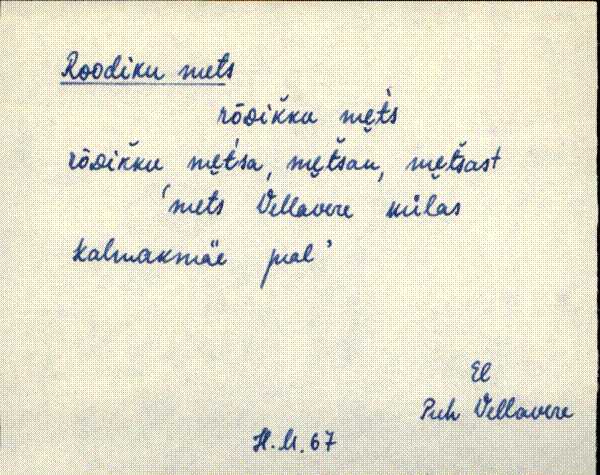 Roodiku mets
rōᴅiƙƙu mȩt́s
rōᴅiƙƙu mȩt́sa, mȩt́san, mȩt́sast
'mets Vellavere külas
Kalmakmäe pial'
El
Puh Vellavere
H.M. 67